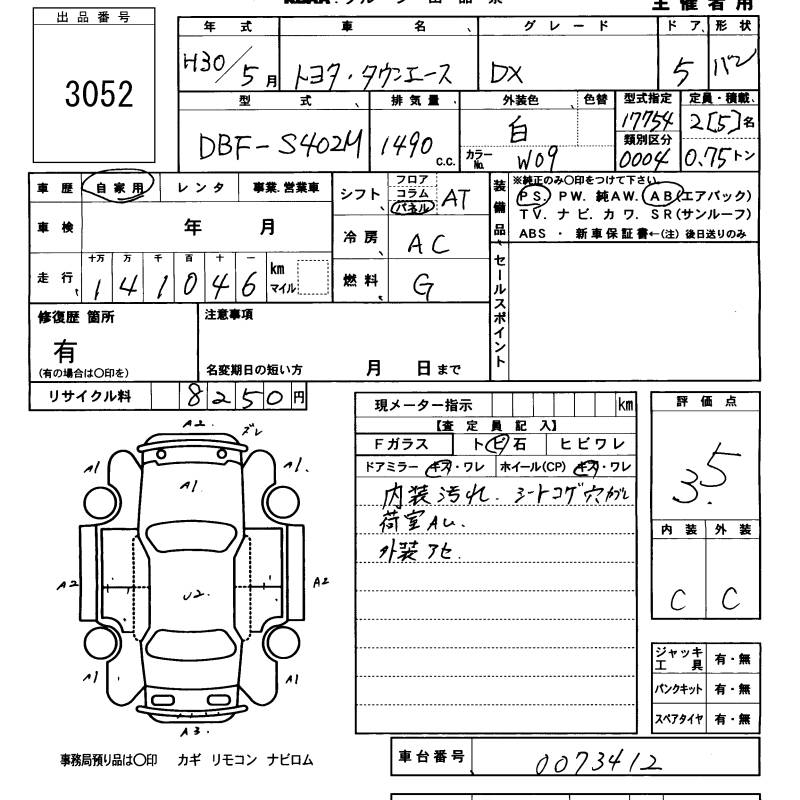 主催者用
出品番号
3052
年式 車名、 グレード ドア、形状
H30/5月 トヨタ・タウンエース DX 5 バン
型式、 排気量、 外装色 色替 型式指定 定員・積載、
DBF-S402M 1490 c.c. 白 17754 2[5]名
カラーNo. W09 類別区分 0004 0.75トン
車歴 自家用 レンタ 事業.営業車
車検 年 月
走行、 十万 万 千 百 十 一 km
141046 マイル
シフト、 フロア コラム パネル AT
冷房、 AC
燃料、 G
装備品、
※純正のみ〇印をつけて下さい。
PS. PW. 純AW. AB(エアバック)
TV. ナビ. カワ. SR(サンルーフ)
ABS ・ 新車保証書←(注) 後日送りのみ
セールスポイント
修復歴 箇所
有
(有の場合は〇印を)
注意事項
名変期日の短い方 月 日まで
リサイクル料 8250円
現メーター指示 km
【査定員記入】
Fガラス トビ石 ヒビワレ
ドアミラー キズ・ワレ ホイール(CP) キズ・ワレ
内装汚れ. シートコゲ穴
荷室AU.
外装アセ.
評価点
3.5
内装 外装
C C
A2 ズレ
A1 A1
A1
A2 U2. A2
A1 A1
A3.
ジャッキ工具 有・無
パンクキット 有・無
スペアタイヤ 有・無
事務局預り品は〇印 カギ リモコン ナビロム
車台番号 0073412